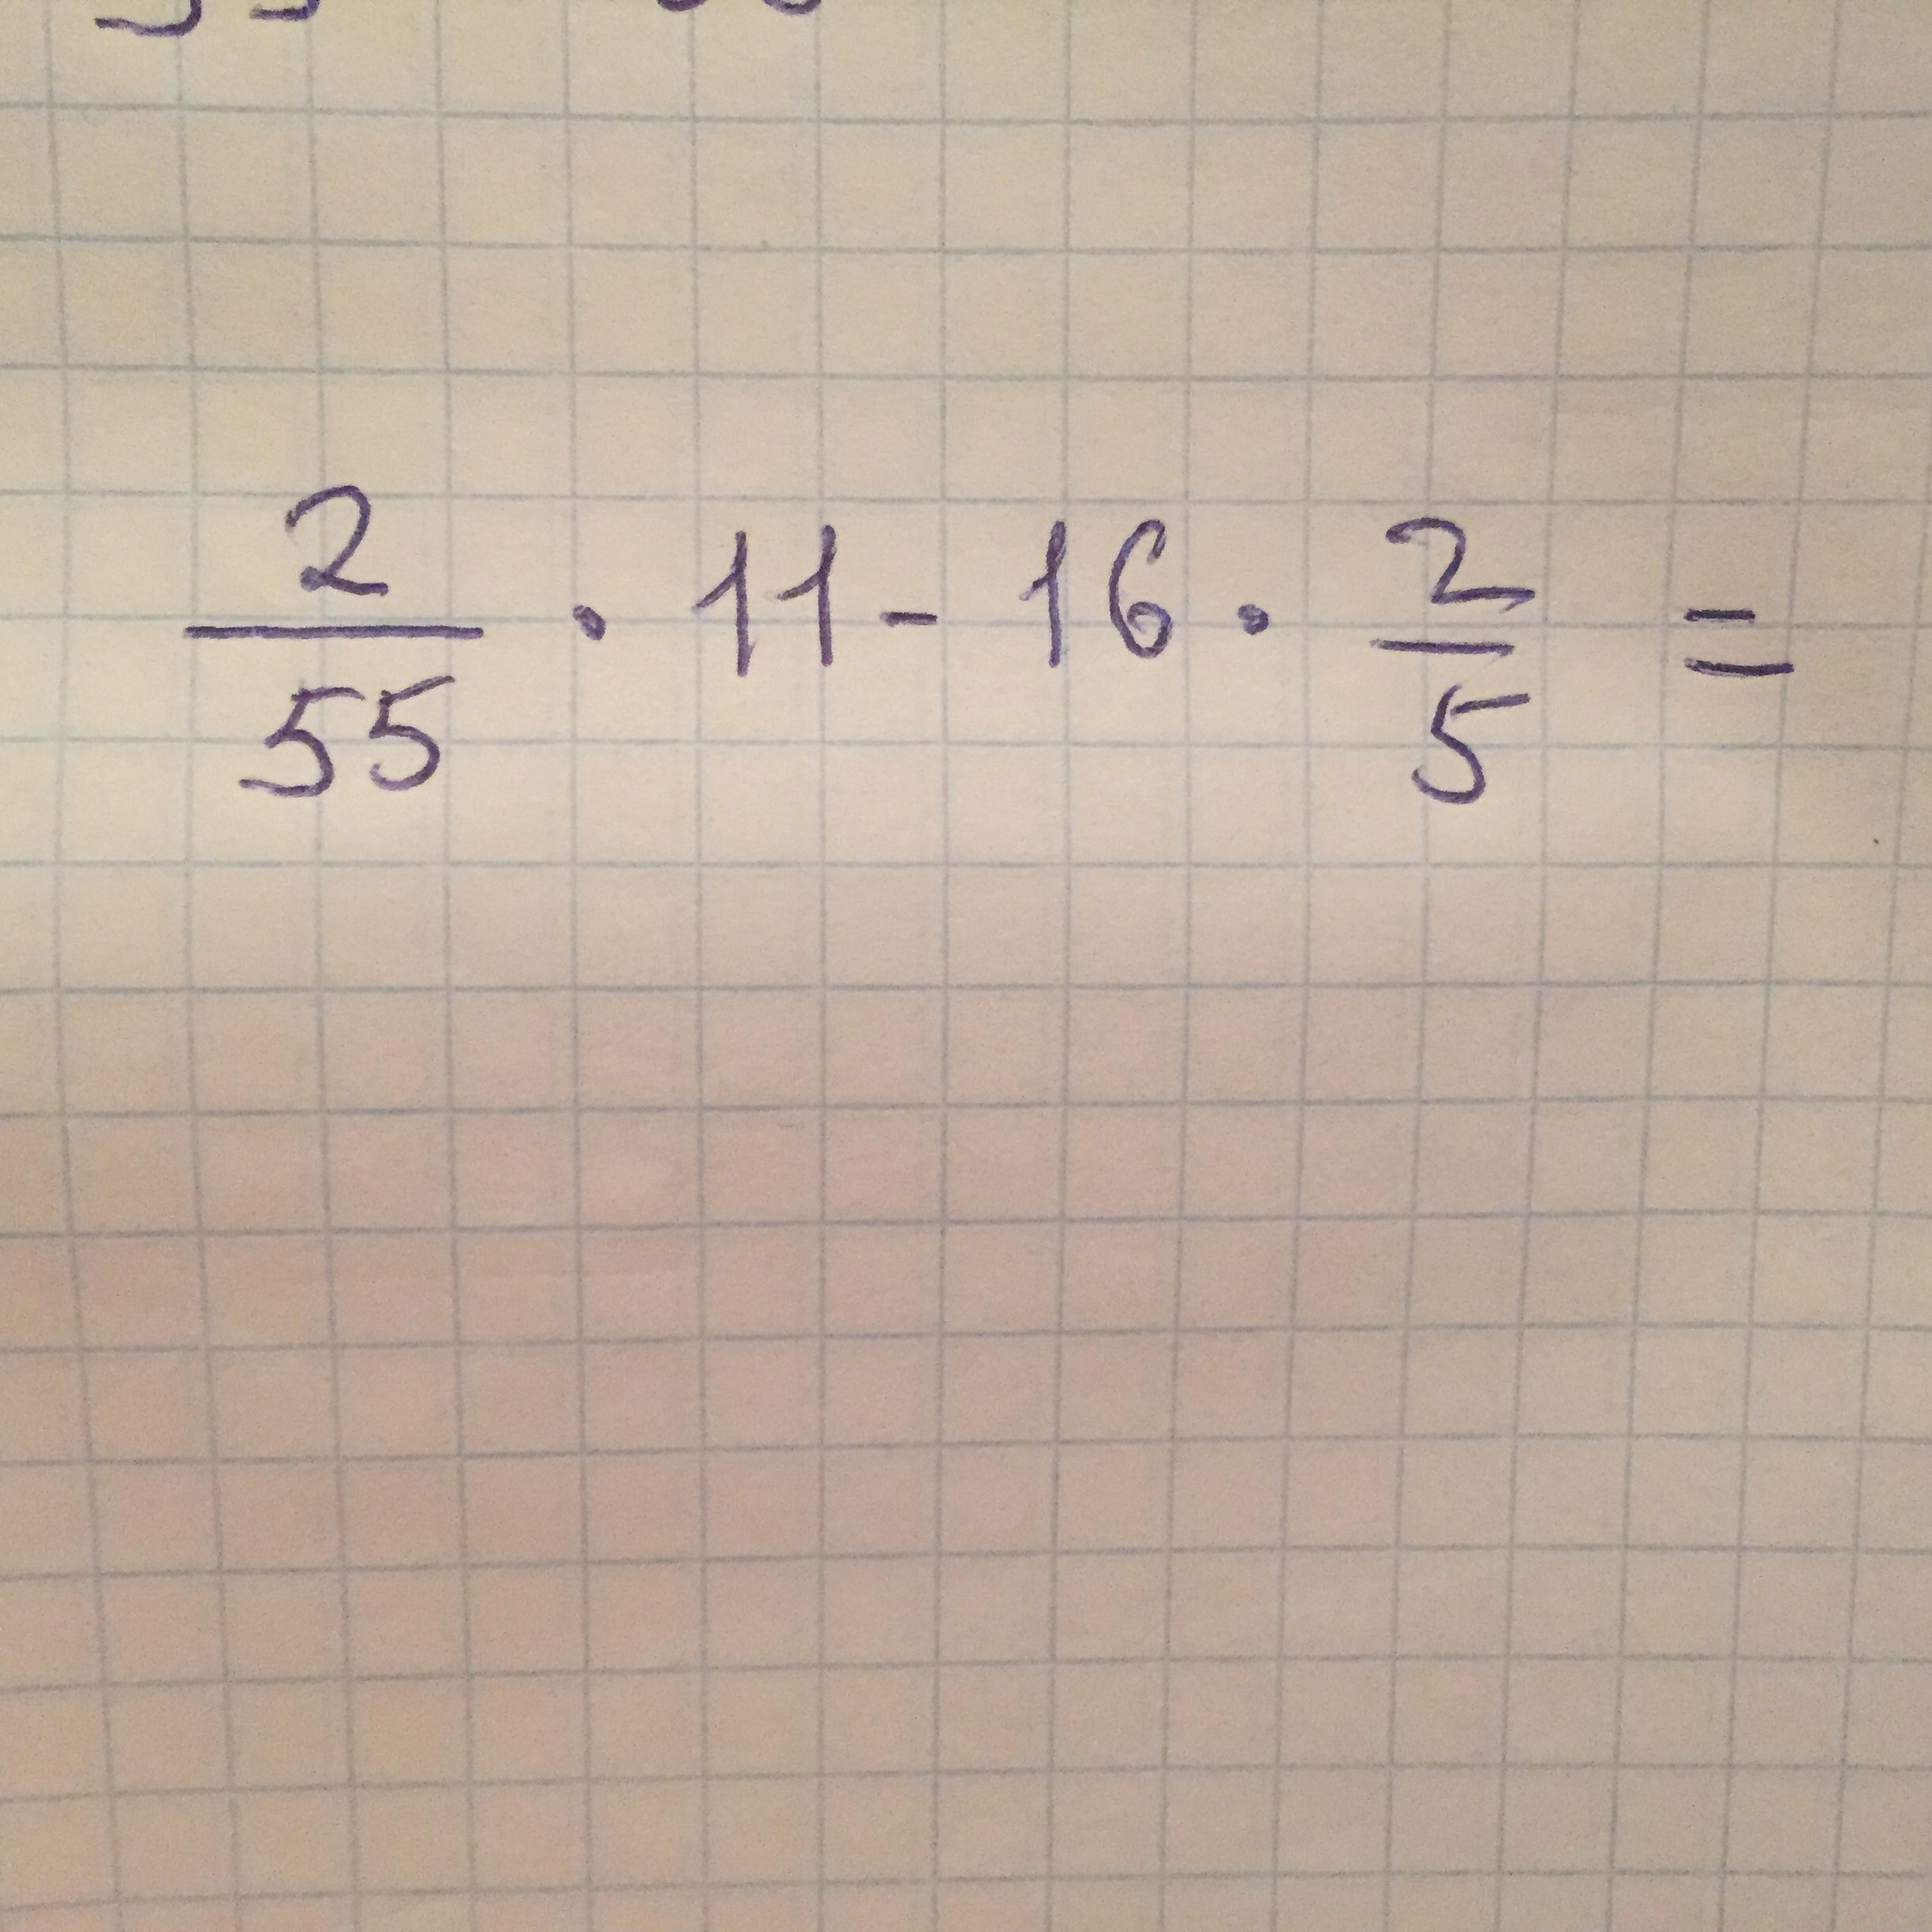 2/55 · 11 - 16 · 2/5 =